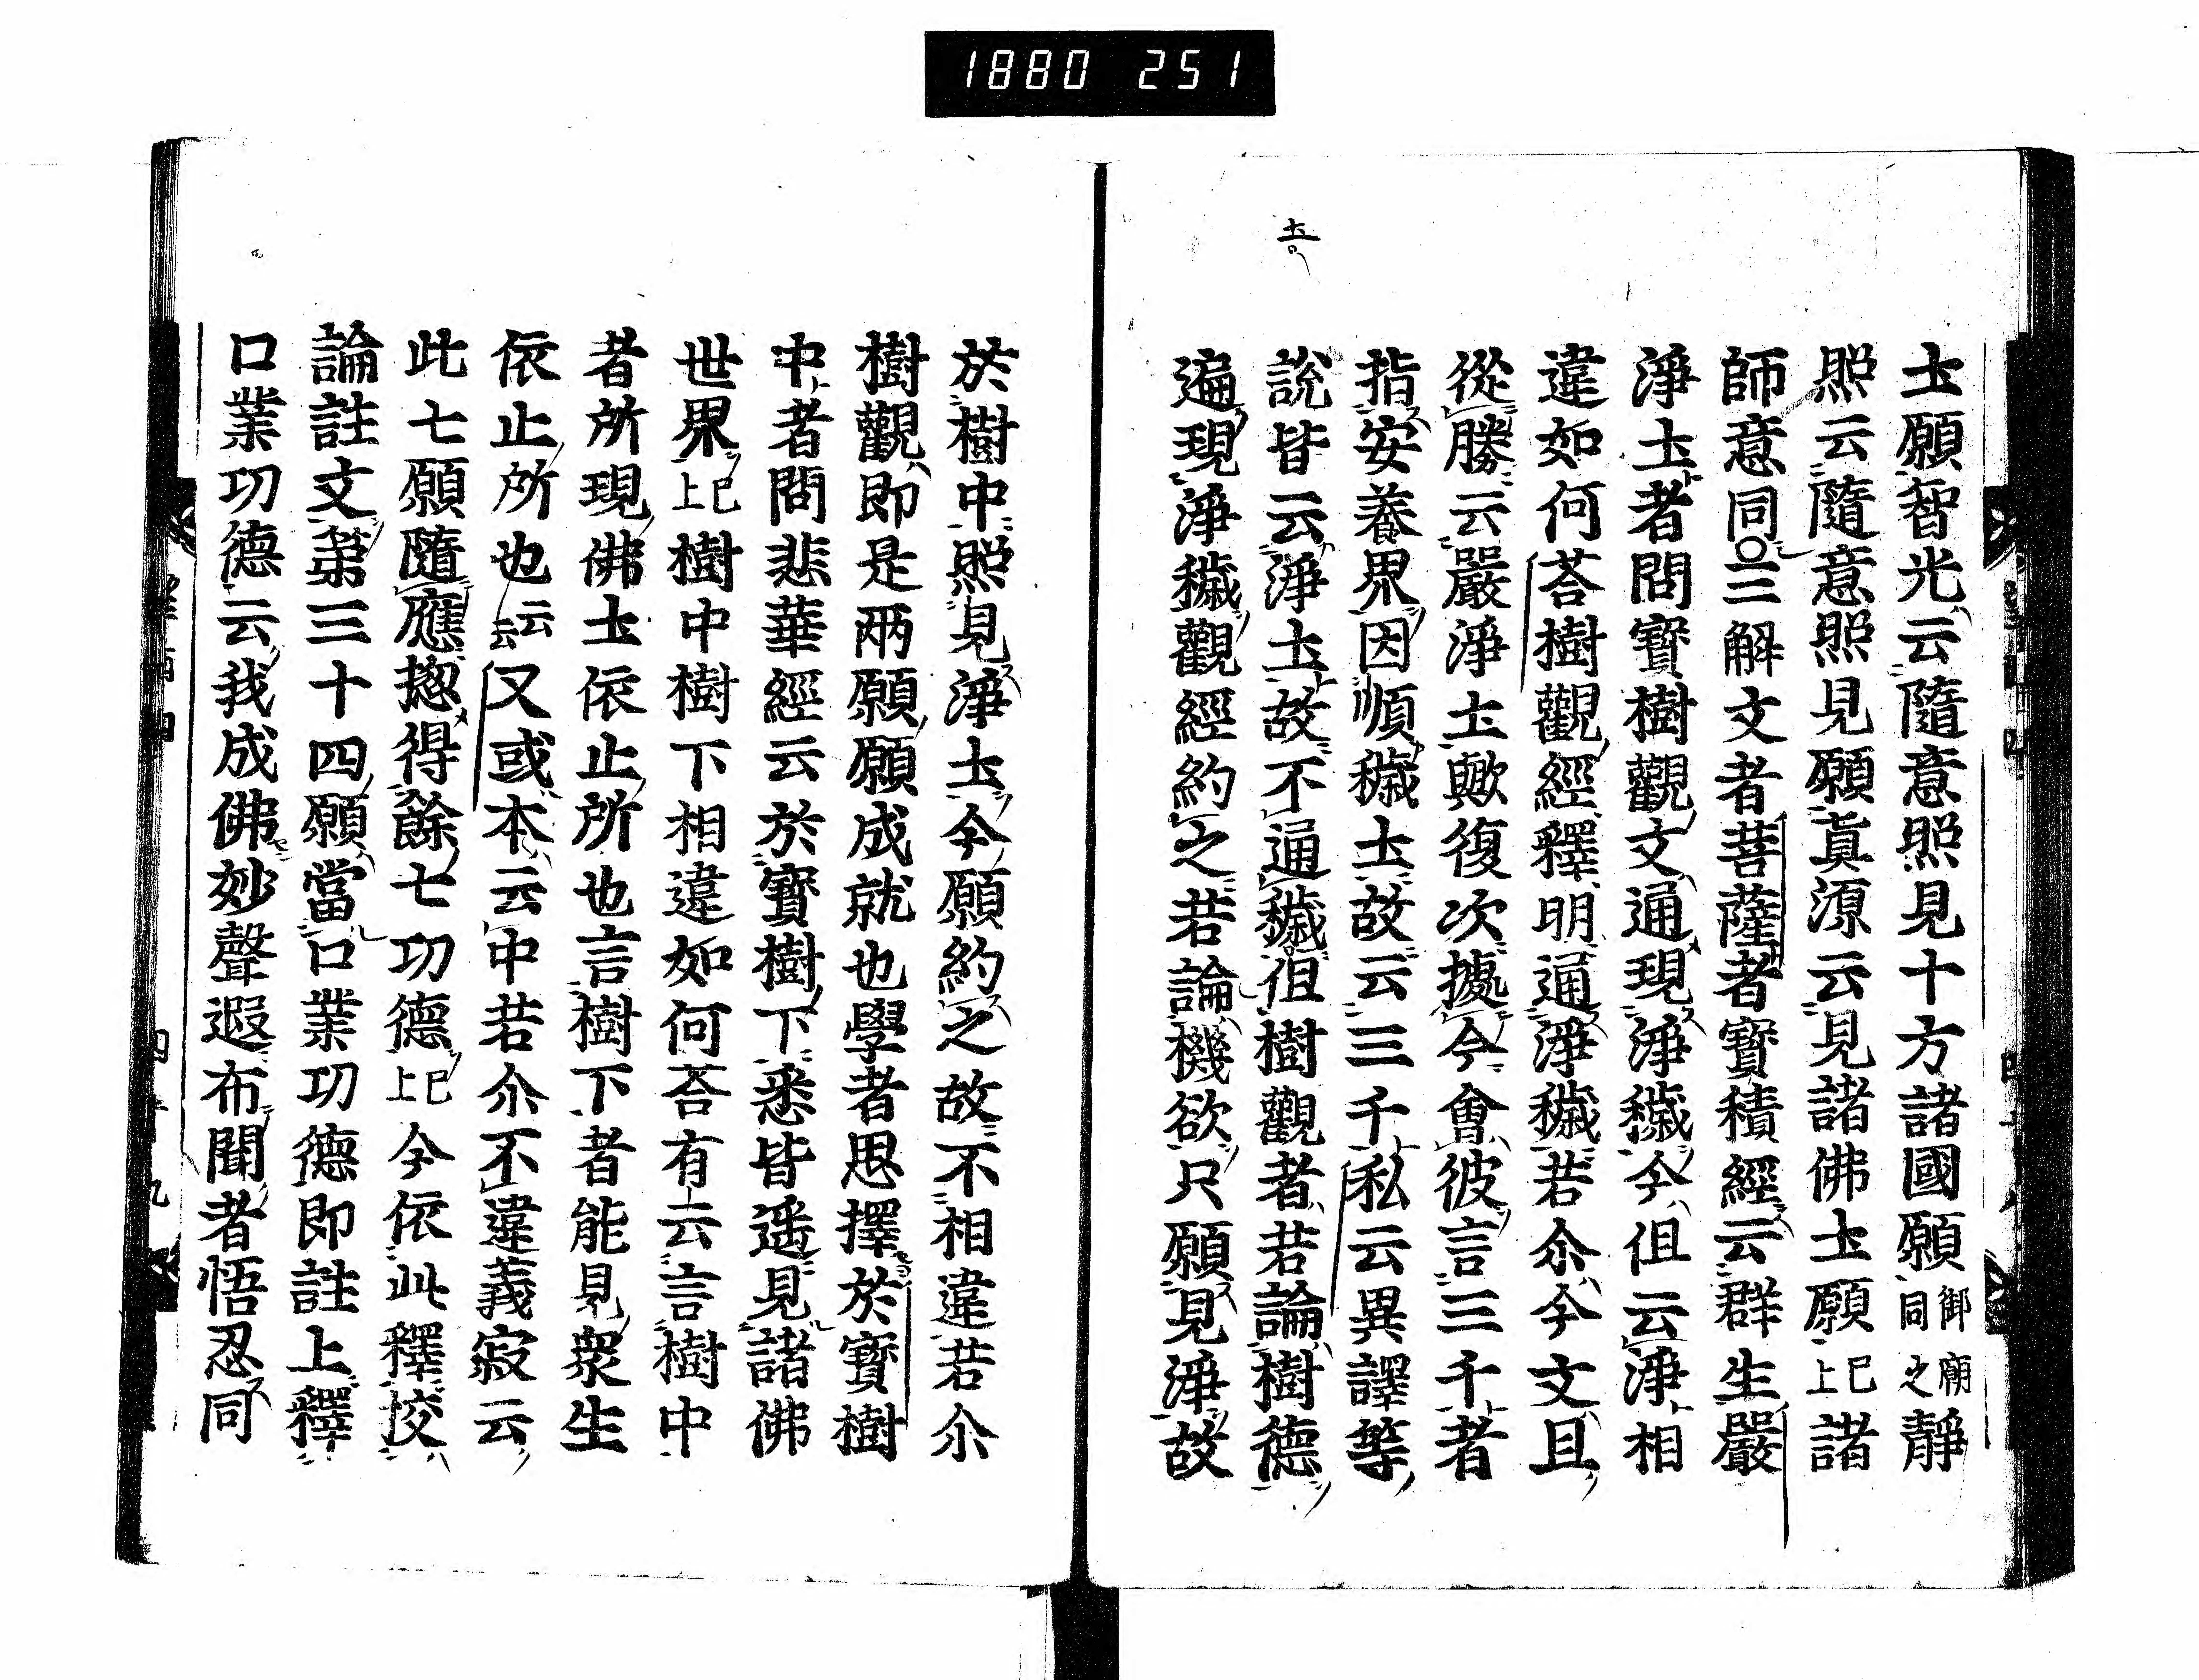 1880 251
圡願智光云隨意照見十方諸國願御廟同之靜
照云隨意照見願眞源云見諸佛圡願已上諸
師意同○三解文者菩薩者寳積經云群生嚴
淨圡者問寳樹觀文通現淨穢今但云淨相
違如何荅樹觀經釋明通淨穢若尒今文且
從勝云嚴淨圡歟復次據今會彼言三千者
指安養界因順穢圡故云三千私云異譯等
說皆云淨圡故不通穢但樹觀者若論樹德
遍現淨穢觀經約之若論機欲只願見淨故
於樹中照見淨圡今願約之故不相違若尒
樹觀即是兩願願成就也學者思擇於寳樹
中者問悲華經云於寳樹下悉皆遥見諸佛
世界已上樹中樹下相違如何荅有云言樹中
者所現佛圡依止所也言樹下者能見衆生
依止所也云云又或本云中若尒不違義寂云
此七願隨應揔得餘七功德已上今依此釋挍
論註文第三十四願當口業功德即註上釋
口業功德云我成佛妙聲遐布聞者悟忍同